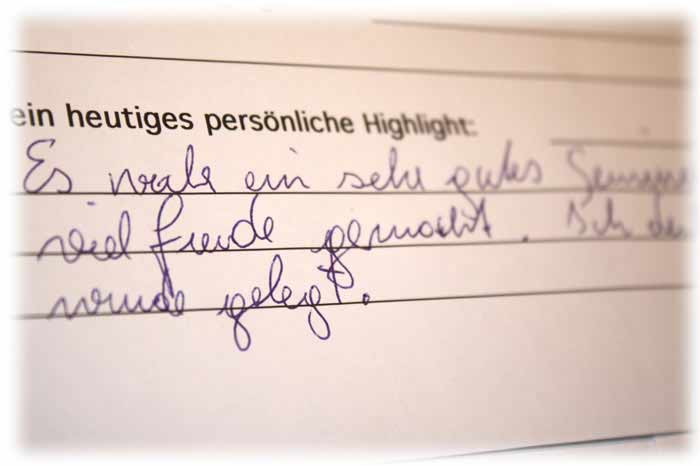 ein heutiges persönliche Highlight:
Es wahr ein sehr gutes
viel freude gemacht. Ich
wurde gelegt.